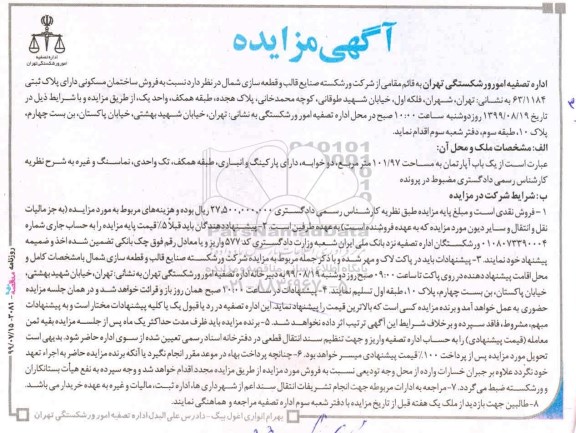 آگهی مزایده
اداره تصفیه
امور ورشکستگی تهران
اداره تصفیه امور ورشکستگی تهران به قائم مقامی از شرکت ورشکسته صنایع قالب و قطعه سازی شمال در نظر دارد نسبت به فروش ساختمان مسکونی دارای پلاک ثبتی
۶۳/۱۱۸۴ به نشانی: تهران، شهران، فلکه اول، خیابان شهید طوقانی، کوچه محمدخانی، پلاک هجده، طبقه همکف، واحد یک، از طریق مزایده و با شرایط ذیل در
تاریخ ۱۳۹۹/۰۸/۱۹ روز دوشنبه ساعت ۱۰:۰۰ صبح در محل اداره تصفیه امور ورشکستگی به نشانی: تهران، خیابان شهید بهشتی، خیابان پاکستان، بن بست چهارم،
پلاک ۱۰، طبقه سوم، دفتر شعبه سوم اقدام نماید.
الف: مشخصات ملک و محل آن:
عبارت است از یک باب آپارتمان به مساحت ۱۰۱/۹۷ متر مربع، دو خوابه، دارای پارکینگ و انباری، طبقه همکف، تک واحدی، نماسنگ و غیره به شرح نظریه
کارشناس رسمی دادگستری مضبوط در پرونده
ب: شرایط شرکت در مزایده
۱- فروش نقدی است و مبلغ پایه مزایده طبق نظریه کارشناس رسمی دادگستری ۲۷,۵۰۰,۰۰۰,۰۰۰ ریال بوده و هزینه‌های مربوط به مورد مزایده (به جز مالیات
نقل و انتقال و سایر دیون مورد مزایده که به عهده فروشنده است) به عهده طرفین است. ۲- پیشنهاددهندگان باید قبلاً ۵٪ قیمت پایه مزایده را به حساب جاری شماره
۰۱۰۸۰۷۳۳۹۰۰۰۴ ورشکستگان اداره تصفیه نزد بانک ملی ایران شعبه وزارت دادگستری کد ۵۷۷ واریز و یا معادل رقم فوق چک بانکی تضمین شده اخذ و ضمیمه
پیشنهاد خود نمایند. ۳- پیشنهادات باید در پاکت لاک و مهر شده و با ذکر جمله مربوط به مزایده شرکت ورشکسته صنایع قالب و قطعه سازی شمال با مشخصات کامل و
محل اقامت پیشنهاد دهنده در روی پاکت تا ساعت ۰۹:۰۰ صبح روز دوشنبه ۹۹/۰۸/۱۹ به دبیرخانه اداره تصفیه امور ورشکستگی تهران به نشانی: تهران، خیابان شهید بهشتی،
خیابان پاکستان، بن بست چهارم، پلاک ۱۰، طبقه اول تسلیم نمایند. ۴- پیشنهادات در ساعت ۱۰:۰۰ صبح همان روز باز و قرائت خواهد شد و در همان جلسه مزایده
حضوری به عمل خواهد آمد و برنده مزایده کسی است که بالاترین قیمت را پیشنهاد نماید. این اداره تصفیه در رد یا قبول یک یا کلیه پیشنهادات مختار است و به پیشنهادات
مبهم، مشروط، فاقد سپرده و بر خلاف شرایط این آگهی ترتیب اثر داده نخواهد شد. ۵- برنده مزایده باید ظرف مدت حداکثر یک ماه پس از جلسه مزایده بقیه ثمن
معامله (قیمت پیشنهادی) را به حساب اداره تصفیه واریز و جهت تنظیم سند انتقال قطعی در دفترخانه اسناد رسمی تعیین شده از سوی اداره حاضر شود. بدیهی است
تحویل مورد مزایده پس از پرداخت ۱۰۰٪ قیمت پیشنهادی میسر خواهد بود. ۶- چنانچه پرداخت بهاء در موعد مقرر انجام نگیرد یا آنکه برنده مزایده حاضر به اجراء تعهد
خود نگردد علاوه بر جبران خسارات وارده از محل وجه تودیعی نسبت به فروش مورد مزایده از طریق مزایده مجدد اقدام خواهد شد و وجه سپرده به نفع هیأت بستانکاران
و ورشکسته ضبط می‌گردد. ۷- مراجعه به ادارات مربوطه جهت انجام تشریفات انتقال سند اعم از شهرداری ها، اداره ثبت، مالیات و غیره به عهده خریدار می‌باشد.
۸- طالبین جهت بازدید از ملک یک هفته قبل از تاریخ مزایده با دفتر شعبه سوم اداره تصفیه مراجعه و هماهنگی نمایند.
بهرام انواری اغول بیگ - دادرس علی البدل اداره تصفیه امور ورشکستگی تهران
روزنامه
۹۹/۰۷/۱۵-۳۰۸۹
۰۲۱-۸۸۳۴۹۶۷۰-۵